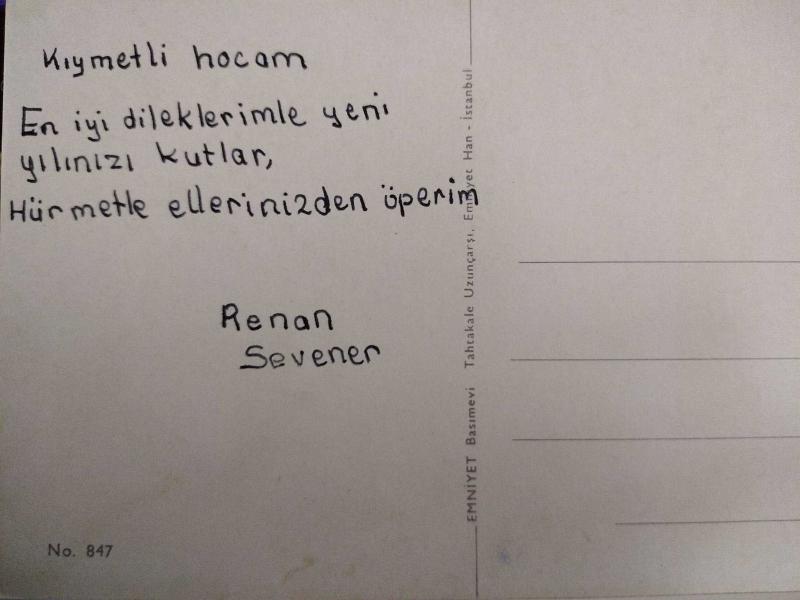 Kıymetli hocam
En iyi dileklerimle yeni
yılınızı kutlar,
Hürmetle ellerinizden öperim
Renan
Sevener
No. 847
EMNİYET Basımevi Tahtakale Uzunçarşı, Emniyet Han - İstanbul